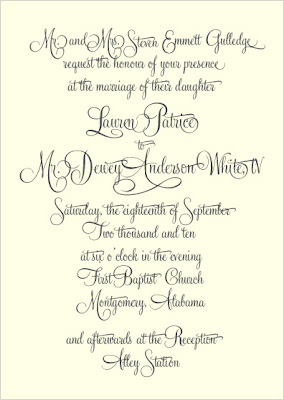 Mr. and Mrs. Steven Emmett Gulledge
request the honour of your presence
at the marriage of their daughter
Lauren Patrice
to
Mr. Dewey Anderson White, IV
Saturday, the eighteenth of September
Two thousand and ten
at six o'clock in the evening
First Baptist Church
Montgomery, Alabama
and afterwards at the Reception
Alley Station